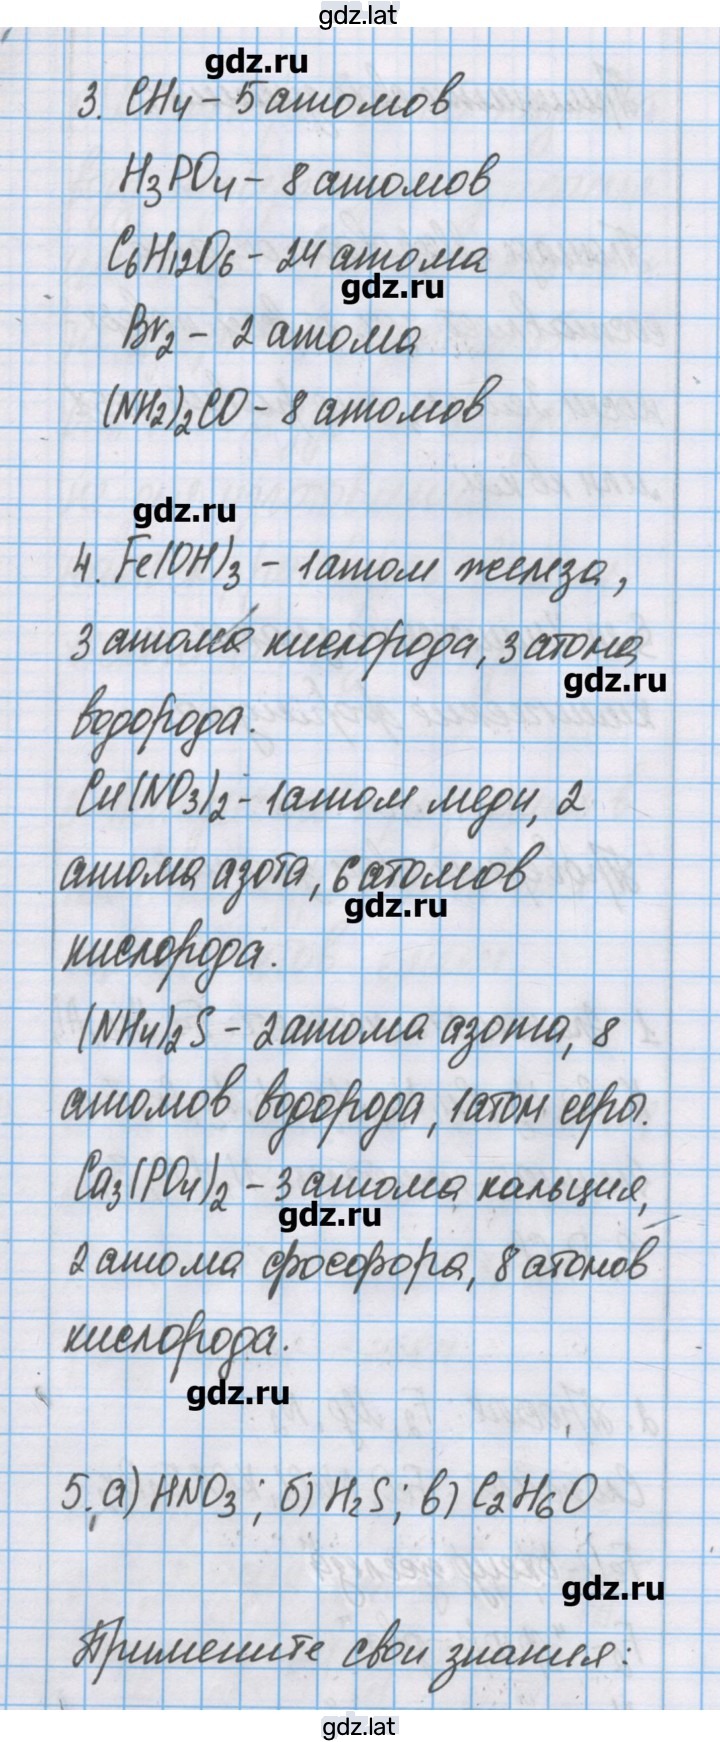 gdz.lat
gdz.ru
3. CH4 - 5 атомов
H3PO4 - 8 атомов
C6H12O6 - 24 атома
gdz.ru
Br2 - 2 атома
(NH2)2CO - 8 атомов
gdz.ru
4. Fe(OH)3 - 1 атом железа,
3 атома кислорода, 3 атома
gdz.ru
водорода.
Cu(NO3)2 - 1 атом меди, 2
атома азота, 6 атомов
gdz.ru
кислорода.
(NH4)2S - 2 атома азота, 8
атомов водорода, 1 атом серы.
Ca3(PO4)2 - 3 атома кальция,
gdz.ru
2 атома фосфора, 8 атомов
кислорода.
gdz.ru
5. а) HNO3; б) H2S; в) C2H6O
gdz.ru
Примените свои знания:
gdz.lat